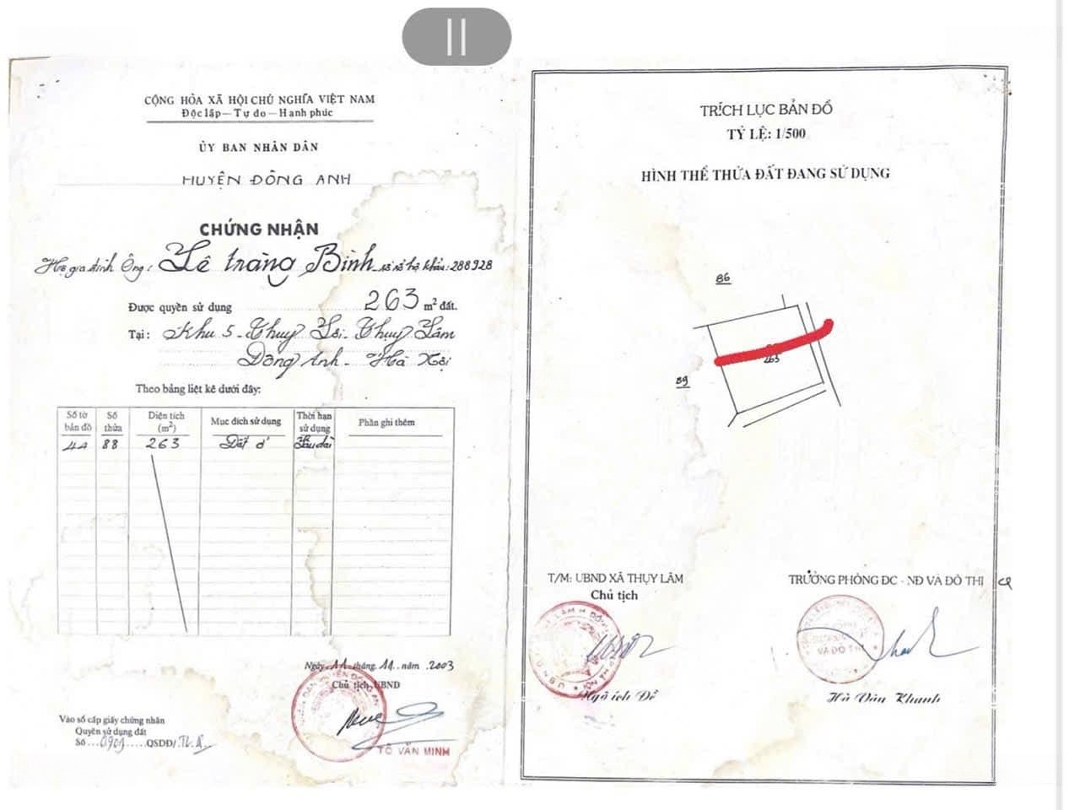 CỘNG HÒA XÃ HỘI CHỦ NGHĨA VIỆT NAM
Độc lập - Tự do - Hạnh phúc
ỦY BAN NHÂN DÂN
HUYỆN ĐÔNG ANH
CHỨNG NHẬN
Hộ gia đình Ông: Lê tràng Bình số sổ hộ khẩu: 288928
Được quyền sử dụng 263 m² đất.
Tại: Khu 5 - Thuỵ Lôi - Thuỵ Lâm
Đông Anh - Hà Nội
Theo bảng liệt kê dưới đây:
Số tờ bản đồ
Số thửa
Diện tích (m²)
Mục đích sử dụng
Thời hạn sử dụng
Phần ghi thêm
44 88 263 Đất ở Lâu dài
Ngày 11 tháng 11 năm 2003
Chủ tịch UBND
TÔ VĂN MINH
Vào sổ cấp giấy chứng nhận
Quyền sử dụng đất
Số QSDĐ/
TRÍCH LỤC BẢN ĐỒ
TỶ LỆ: 1/500
HÌNH THỂ THỬA ĐẤT ĐANG SỬ DỤNG
86
263
89
T/M: UBND XÃ THỤY LÂM
Chủ tịch
Ngô ích Đễ
TRƯỞNG PHÒNG ĐC - NĐ VÀ ĐÔ THỊ
VÀ ĐÔ THỊ
Hà Văn Khanh